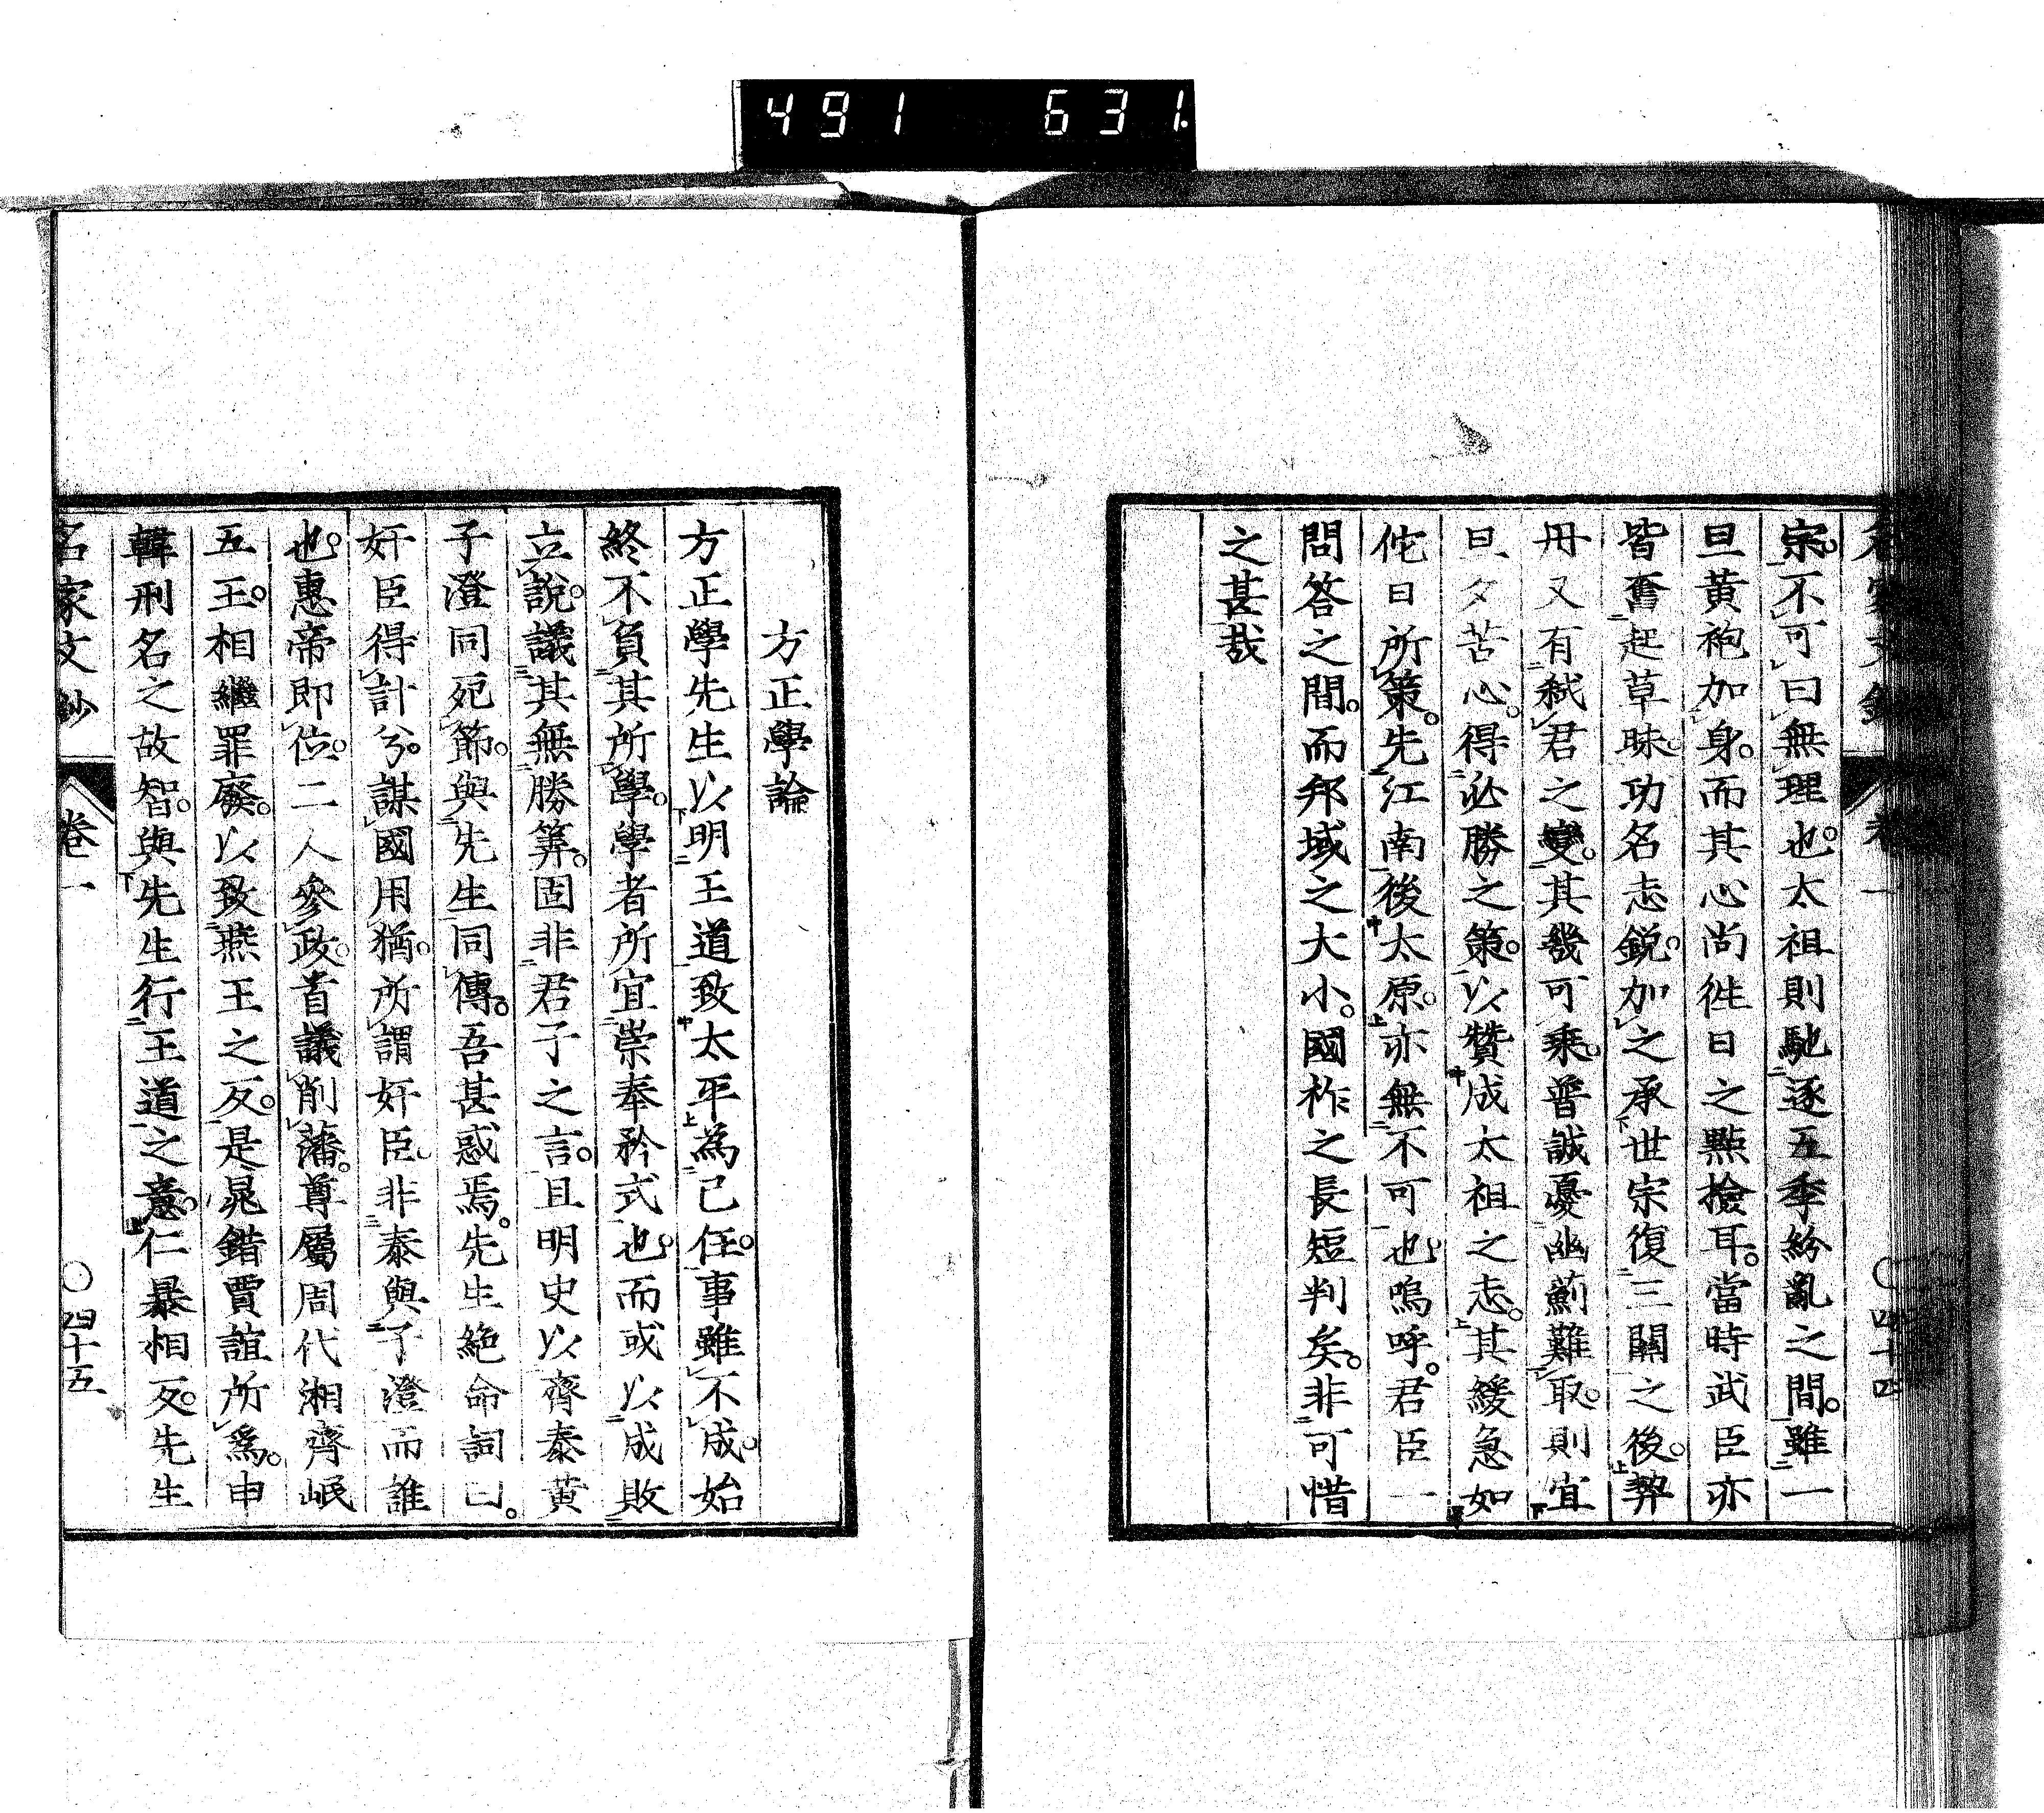 491 631
宗。不可曰無理也。太祖則馳逐五季紛亂之間。雖一
旦黄袍加身。而其心尚徃日之點撿耳。當時武臣亦
皆奮起草昧。功名志鋭。加之承世宗復三關之後。契
丹又有弑君之變。其幾可乘。普誠憂幽薊難取。則宜
旦夕苦心。得必勝之策。以贊成太祖之志。其緩急如
佗日所策。先江南後太原。亦無不可也。嗚呼。君臣一
問答之間。而邦域之大小。國祚之長短判矣。非可惜
之甚哉
方正學論
方正學先生以明王道致太平為己任。事雖不成。始
終不負其所學。學者所宜崇奉矜式也。而或以成敗
立說。議其無勝筭。固非君子之言。且明史以齊泰黄
子澄同死節。與先生同傳。吾甚惑焉。先生絶命詞曰。
奸臣得計兮。謀國用猶。所謂奸臣。非泰與子澄而誰
也。惠帝即位。二人參政。首議削藩。尊屬周代湘齊岷
五王。相繼罪廢。以致燕王之反。是晁錯賈誼所爲。申
韓刑名之故智。與先生行王道之意。仁暴相反。先生
名家文鈔
卷一
四十五